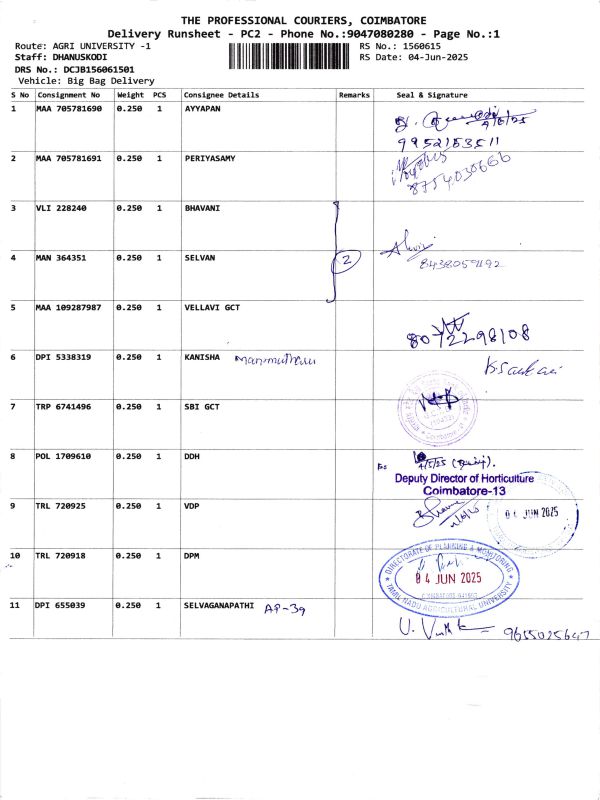 THE PROFESSIONAL COURIERS, COIMBATORE
Delivery Runsheet - PC2 - Phone No.:9047080280 - Page No.:1
Route: AGRI UNIVERSITY -1
RS No.: 1560615
Staff: DHANUSKODI
RS Date: 04-Jun-2025
DRS No.: DCJB156061501
Vehicle: Big Bag Delivery
S No Consignment No Weight PCS Consignee Details Remarks Seal & Signature
1 MAA 705781690 0.250 1 AYYAPAN
9952153511
2 MAA 705781691 0.250 1 PERIYASAMY
8754030666
3 VLI 228240 0.250 1 BHAVANI
4 MAN 364351 0.250 1 SELVAN 2
8438059192
5 MAA 109287987 0.250 1 VELLAVI GCT
8072298108
6 DPI 5338319 0.250 1 KANISHA
7 TRP 6741496 0.250 1 SBI GCT
8 POL 1709610 0.250 1 DDH
4/5/25
Deputy Director of Horticulture
Coimbatore-13
9 TRL 720925 0.250 1 VDP
04 JUN 2025
10 TRL 720918 0.250 1 DPM
DIRECTORATE OF PLANNING & MONITORING
04 JUN 2025
TAMIL NADU AGRICULTURAL UNIVERSITY
11 DPI 655039 0.250 1 SELVAGANAPATHI AP-39
9655025647